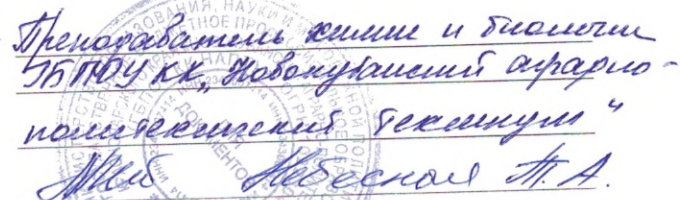 Преподаватель химии и биологии
ГБПОУ КК „Новокубанский аграрно-
политехнический техникум"
Небесная Т.А.